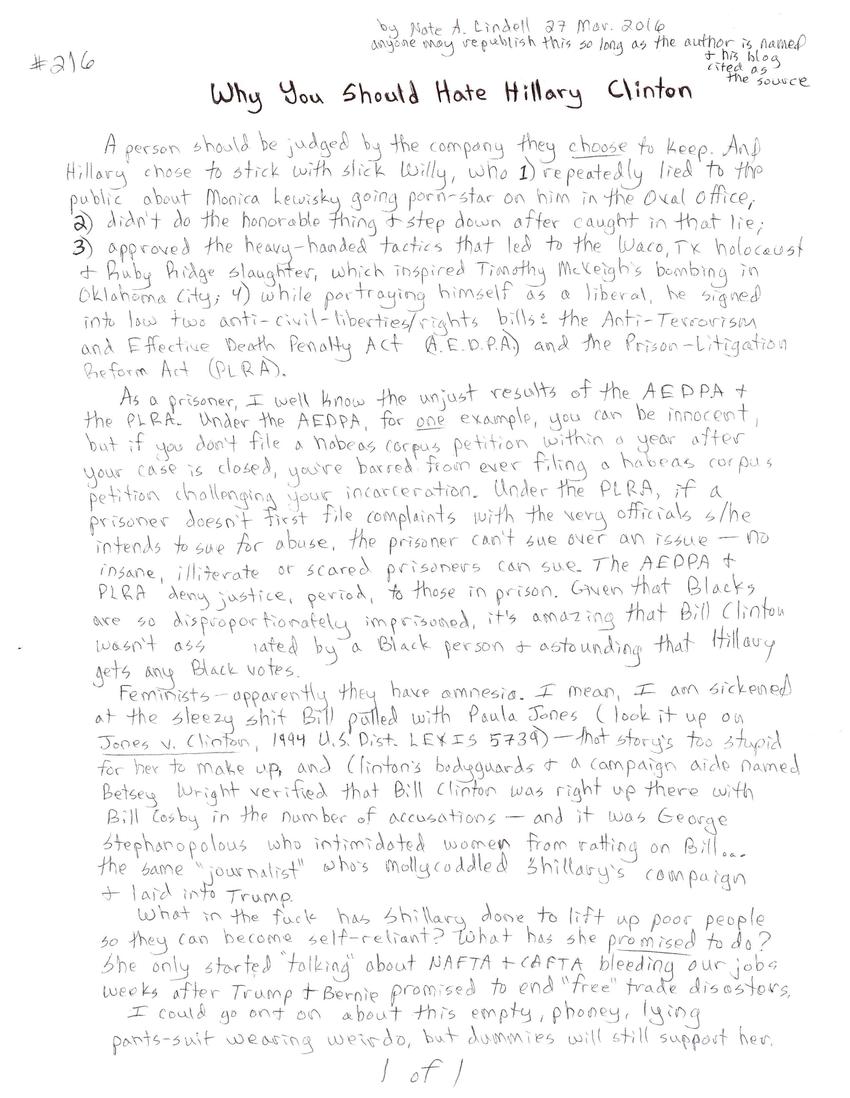 by Nate A. Lindell 27 Mar. 2016
anyone may republish this so long as the author is named
+ his blog
cited as
the source
#216
Why You Should Hate Hillary Clinton
A person should be judged by the company they choose to keep. And
Hillary chose to stick with slick Willy, who 1) repeatedly lied to the
public about Monica Lewisky going porn-star on him in the Oval Office;
2) didn't do the honorable thing + step down after caught in that lie;
3) approved the heavy-handed tactics that led to the Waco, TX holocaust
+ Ruby Ridge slaughter, which inspired Timothy McKeigh's bombing in
Oklahoma City; 4) while portraying himself as a liberal, he signed
into law two anti-civil-liberties/rights bills: the Anti-Terrorism
and Effective Death Penalty Act (A.E.D.P.A.) and the Prison-Litigation
Reform Act (PLRA).
As a prisoner, I well know the unjust results of the AEDPA +
the PLRA. Under the AEDPA, for one example, you can be innocent,
but if you don't file a habeas corpus petition within a year after
your case is closed, you're barred from ever filing a habeas corpus
petition challenging your incarceration. Under the PLRA, if a
prisoner doesn't first file complaints with the very officials s/he
intends to sue for abuse, the prisoner can't sue over an issue — no
insane, illiterate or scared prisoners can sue. The AEDPA +
PLRA deny justice, period, to those in prison. Given that Blacks
are so disproportionately imprisoned, it's amazing that Bill Clinton
wasn't ass iated by a Black person + astounding that Hillary
gets any Black votes.
Feminists — apparently they have amnesia. I mean, I am sickened
at the sleezy shit Bill pulled with Paula Jones (look it up on
Jones v. Clinton, 1994 U.S. Dist. LEXIS 5739) — that story's too stupid
for her to make up, and Clinton's bodyguards + a campaign aide named
Betsey Wright verified that Bill Clinton was right up there with
Bill Cosby in the number of accusations — and it was George
Stephanopolous who intimidated women from ratting on Bill...
the same "journalist" who's mollycoddled Shillary's campaign
+ laid into Trump.
What in the fuck has Shillary done to lift up poor people
so they can become self-reliant? What has she promised to do?
She only started "talking" about NAFTA + CAFTA bleeding our jobs
weeks after Trump + Bernie promised to end "free" trade disasters.
I could go ont on about this empty, phoney, lying
pants-suit wearing weirdo, but dummies will still support her.
1 of 1